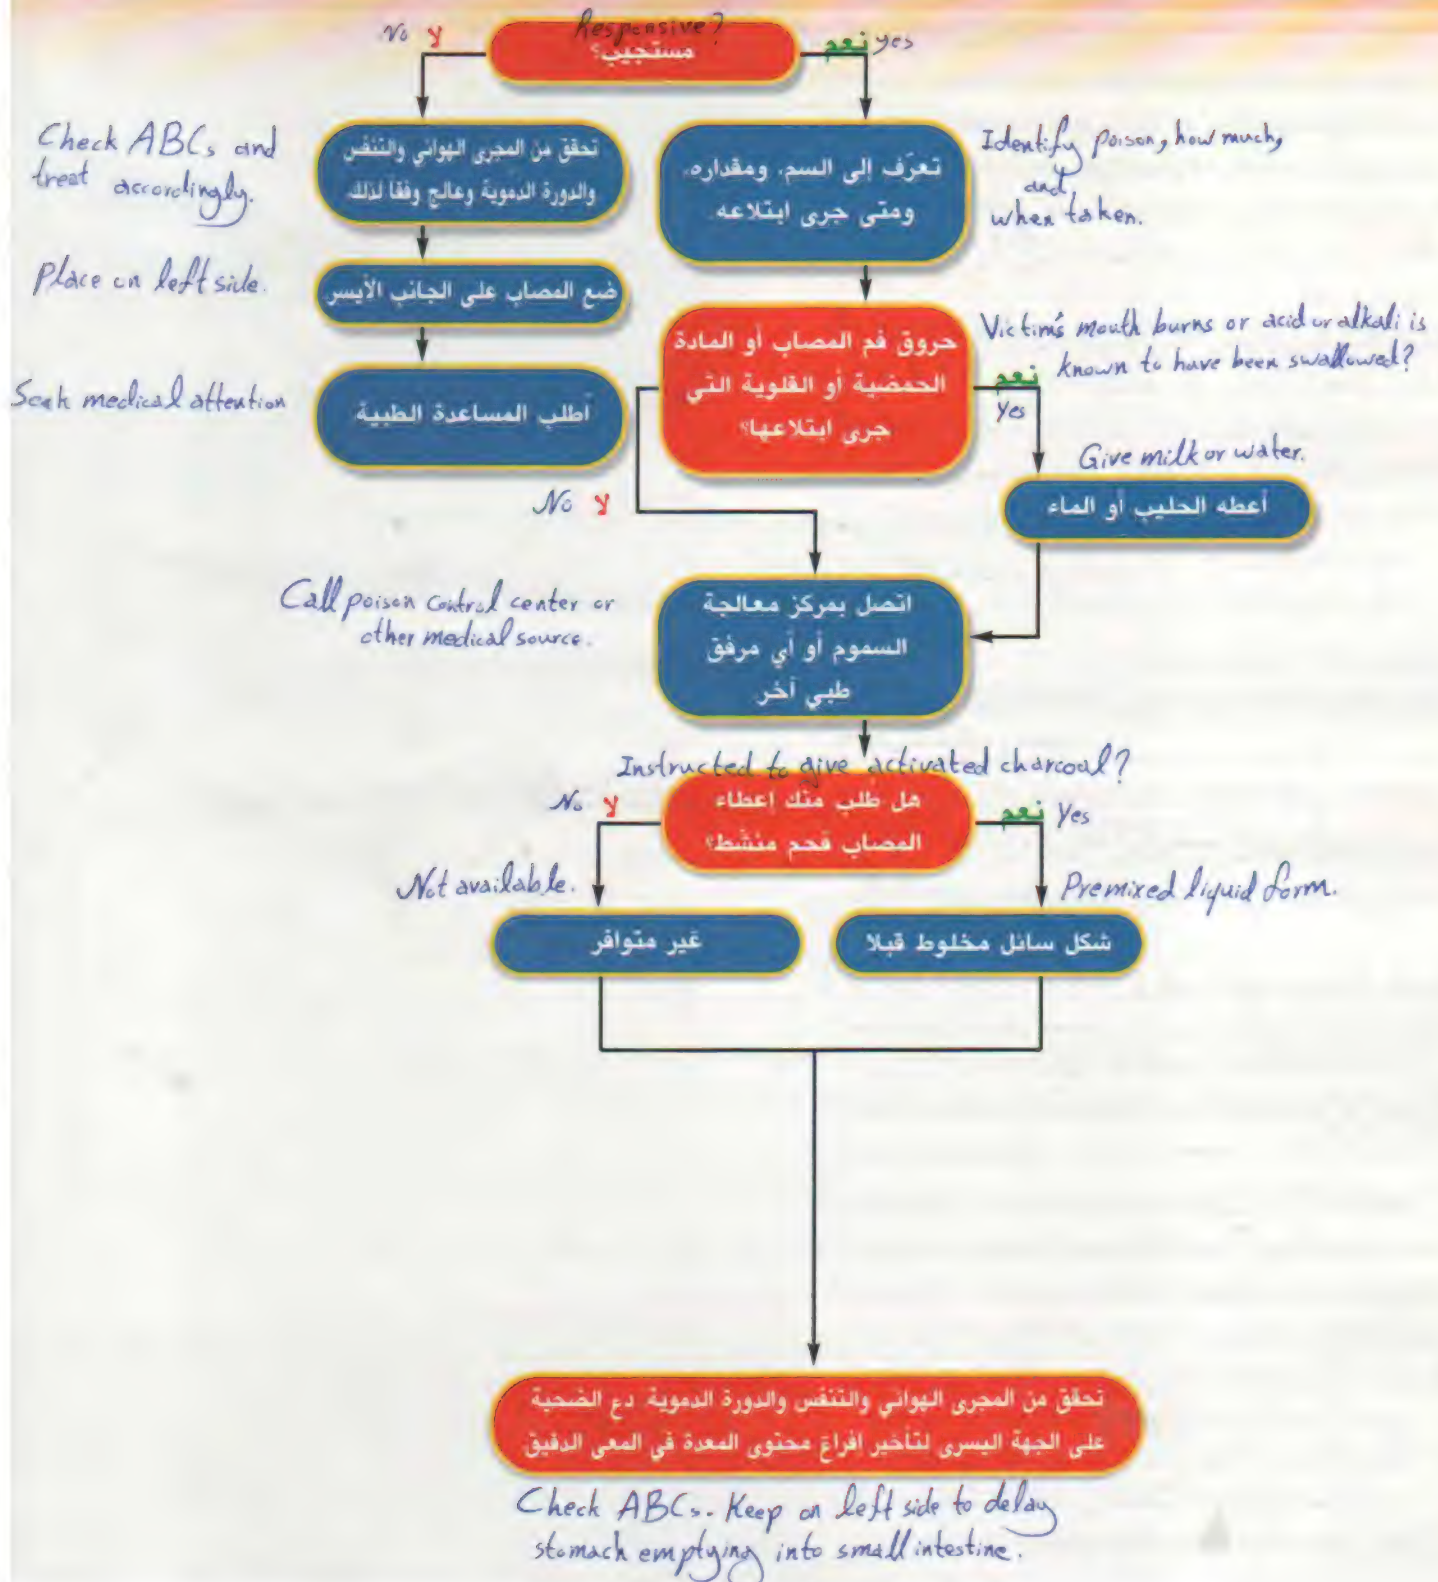 Responsive?
مستجيب؟
No لا
نعم yes
Check ABCs and
treat accordingly.
تحقق من المجرى الهوائي والتنفس
والدورة الدموية وعالج وفقا لذلك
تعرّف إلى السم، ومقداره،
ومتى جرى ابتلاعه
Identify poison, how much,
and
when taken.
Place on left side.
ضع المصاب على الجانب الأيسر
Seek medical attention
أطلب المساعدة الطبية
حروق فم المصاب أو المادة
الحمضية أو القلوية التي
جرى ابتلاعها؟
Victim's mouth burns or acid or alkali is
known to have been swallowed?
نعم
Yes
Give milk or water.
أعطه الحليب أو الماء
No لا
Call poison control center or
other medical source.
اتصل بمركز معالجة
السموم أو أي مرفق
طبي أخر
Instructed to give activated charcoal?
هل طلب منك إعطاء
المصاب فحم منشّط؟
No لا
نعم Yes
Not available.
غير متوافر
Premixed liquid form.
شكل سائل مخلوط قبلا
تحقق من المجرى الهوائي والتنفس والدورة الدموية. دع الضحية
على الجهة اليسرى لتأخير إفراغ محتوى المعدة في المعى الدقيق
Check ABCs. Keep on left side to delay
stomach emptying into small intestine.